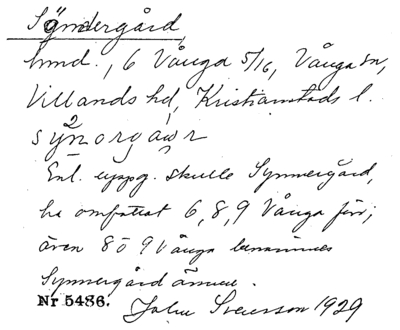 Syndergård
hmd., 6 Vånga 5/16, Vånga sn,
Villands hd, Kristianstads l.
Enl. uppg. skulle Synnergård,
ha omfattat 6, 8, 9 Vånga förr;
även 8 o 9 Vånga benämnes
Synnergård ännu.
Nr 5486. John Svensson 1929